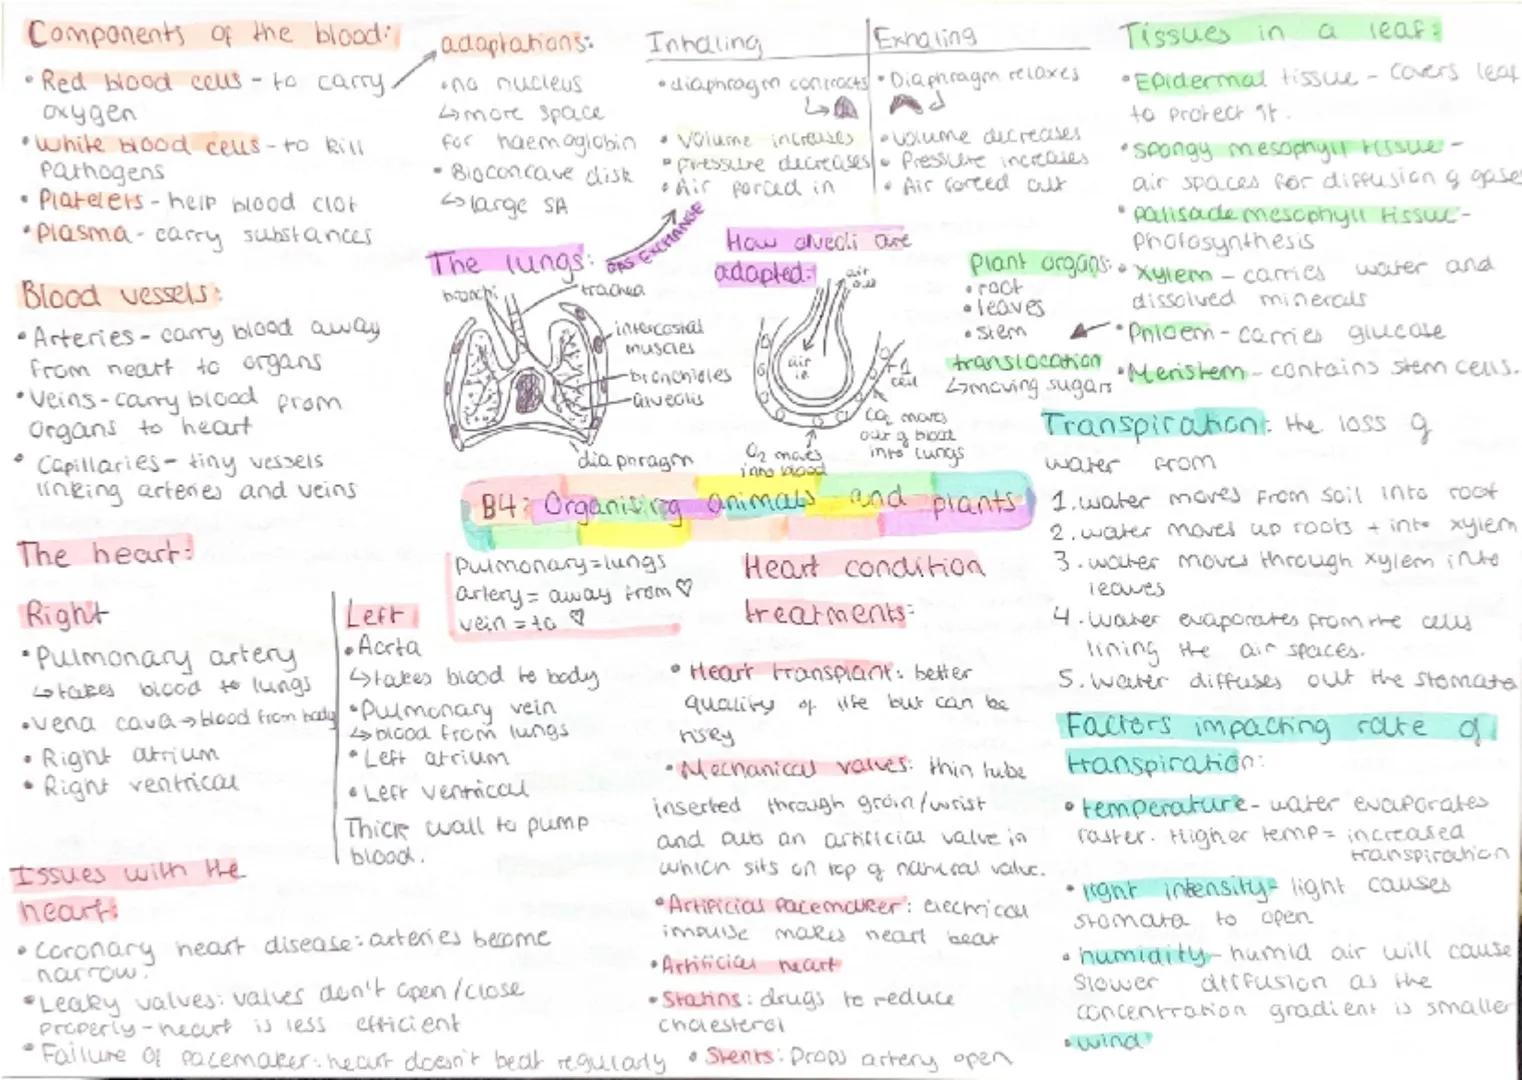 Components of the blood:
• Red blood cells - to carry
oxygen
• White blood cells - to kill
pathogens
• Platelets - help blood clot
• Plasma - carry substances
adaptations:
• no nucleus
↳ more space
for haemoglobin
• Bioconcave disk
↳ large SA
Blood vessels:
• Arteries - carry blood away
from heart to organs
• Veins - carry blood from
organs to heart
• Capillaries - tiny vessels
linking arteries and veins
Inhaling
• diaphragm contracts
• Volume increases
• pressure decreases
• Air forced in
Exhaling
• Diaphragm relaxes
• volume decreases
• Pressure increases
• Air forced out
GAS EXCHANGE
The lungs:
bronchi
trachea
intercostal
muscles
bronchioles
alveolis
diaphragm
How alveoli are
adapted:
air
out
air
in
1
cell
CO2 moves
out of blood
into lungs
O2 moves
into blood
Plant organs:
• root
• leaves
• stem
translocation
↳ moving sugars
Tissues in a leaf:
• Epidermal tissue - covers leaf
to protect it.
• spongy mesophyll tissue -
air spaces for diffusion of gases
• palisade mesophyll tissue -
Photosynthesis
• Xylem - carries water and
dissolved minerals
• Phloem - carries glucose
• Meristem - contains stem cells.
B4: Organising animals and plants
Pulmonary = lungs
artery = away from ♡
vein = to ♡
The heart:
Right
• Pulmonary artery
↳ takes blood to lungs
• vena cava → blood from body
• Right atrium
• Right ventrical
Left
• Aorta
↳ takes blood to body
• Pulmonary vein
↳ blood from lungs
• Left atrium
• Left ventrical
Thick wall to pump
blood.
Issues with the
heart:
• Coronary heart disease: arteries become
narrow.
• Leaky valves: valves don't open/close
properly - heart is less efficient
• Failure of pacemaker: heart doesn't beat regularly
Heart condition
treatments:
• Heart transplant: better
quality of life but can be
risky
• Mechanical valves: thin tube
inserted through groin/wrist
and puts an artificial valve in
which sits on top of natural valve.
• Artificial pacemaker: electrical
impulse makes heart beat
• Artificial heart
• Statins: drugs to reduce
cholesterol
• Stents: Props artery open
Transpiration: the loss of
water from
1. water moves from soil into root
2. water moves up roots + into xylem
3. water moves through xylem into
leaves
4. water evaporates from the cells
lining the air spaces.
5. water diffuses out the stomata
Factors impacting rate of
transpiration:
• temperature - water evaporates
faster. Higher temp = increased
transpiration
• light intensity - light causes
stomata to open
• humidity - humid air will cause
slower diffusion as the
concentration gradient is smaller
• wind